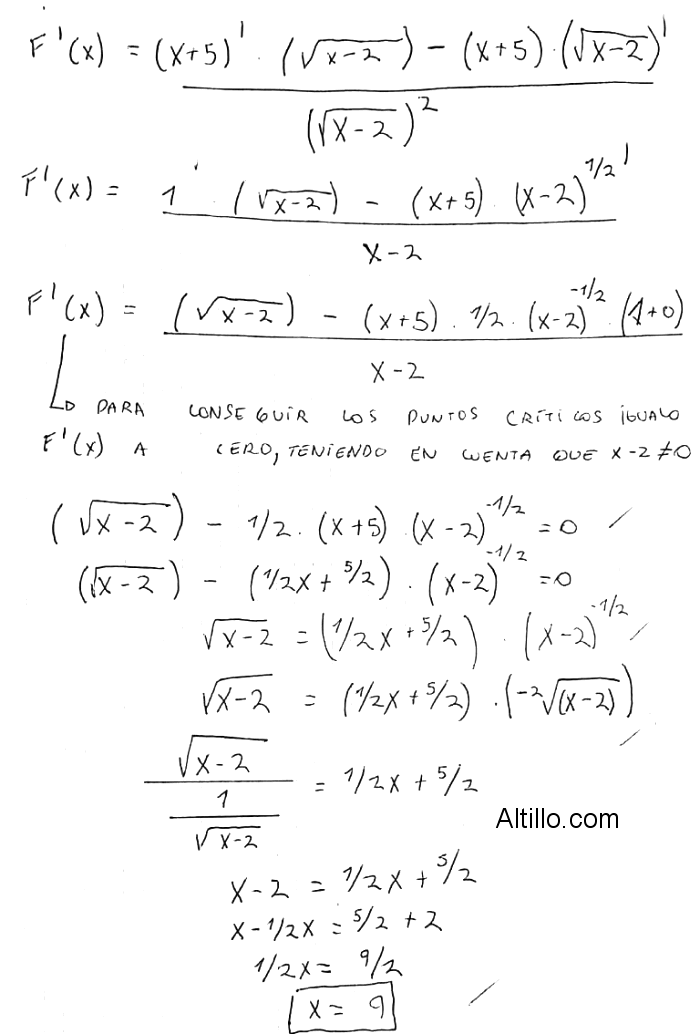 F'(x) = (x+5)' · (√x-2) - (x+5) · (√x-2)'
(√x-2)²
F'(x) = 1 · (√x-2) - (x+5) · (x-2)^1/2 '
x-2
F'(x) = (√x-2) - (x+5) · 1/2 · (x-2)^-1/2 · (1+0)
x-2
PARA CONSEGUIR LOS PUNTOS CRÍTICOS IGUALO
F'(x) A CERO, TENIENDO EN CUENTA QUE x-2≠0
(√x-2) - 1/2 · (x+5) · (x-2)^-1/2 = 0
(√x-2) - (1/2x + 5/2) · (x-2)^-1/2 = 0
√x-2 = (1/2x + 5/2) · (x-2)^-1/2
√x-2 = (1/2x + 5/2) · (-2√(x-2))
√x-2
1
√x-2
= 1/2x + 5/2
Altillo.com
x-2 = 1/2x + 5/2
x - 1/2x = 5/2 + 2
1/2x = 9/2
x = 9